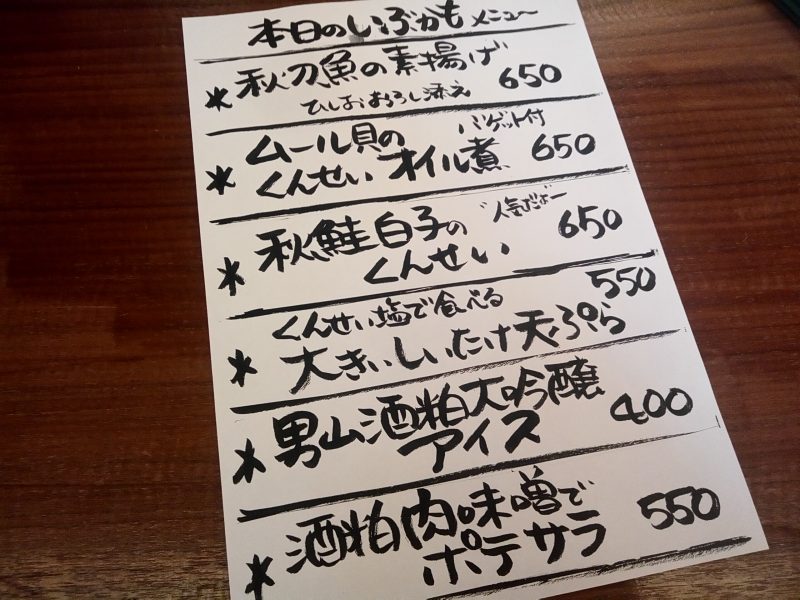 本日のいぶかもメニュー
*秋刀魚の素揚げ 650
ひしおおろし添え
バゲット付
*ムール貝の
くんせいオイル煮 650
人気だよー
*秋鮭白子の 650
くんせい
くんせい塩で食べる 550
*大きいしいたけ天ぷら
*男山酒粕大吟醸 400
アイス
*酒粕肉味噌で 550
ポテサラ